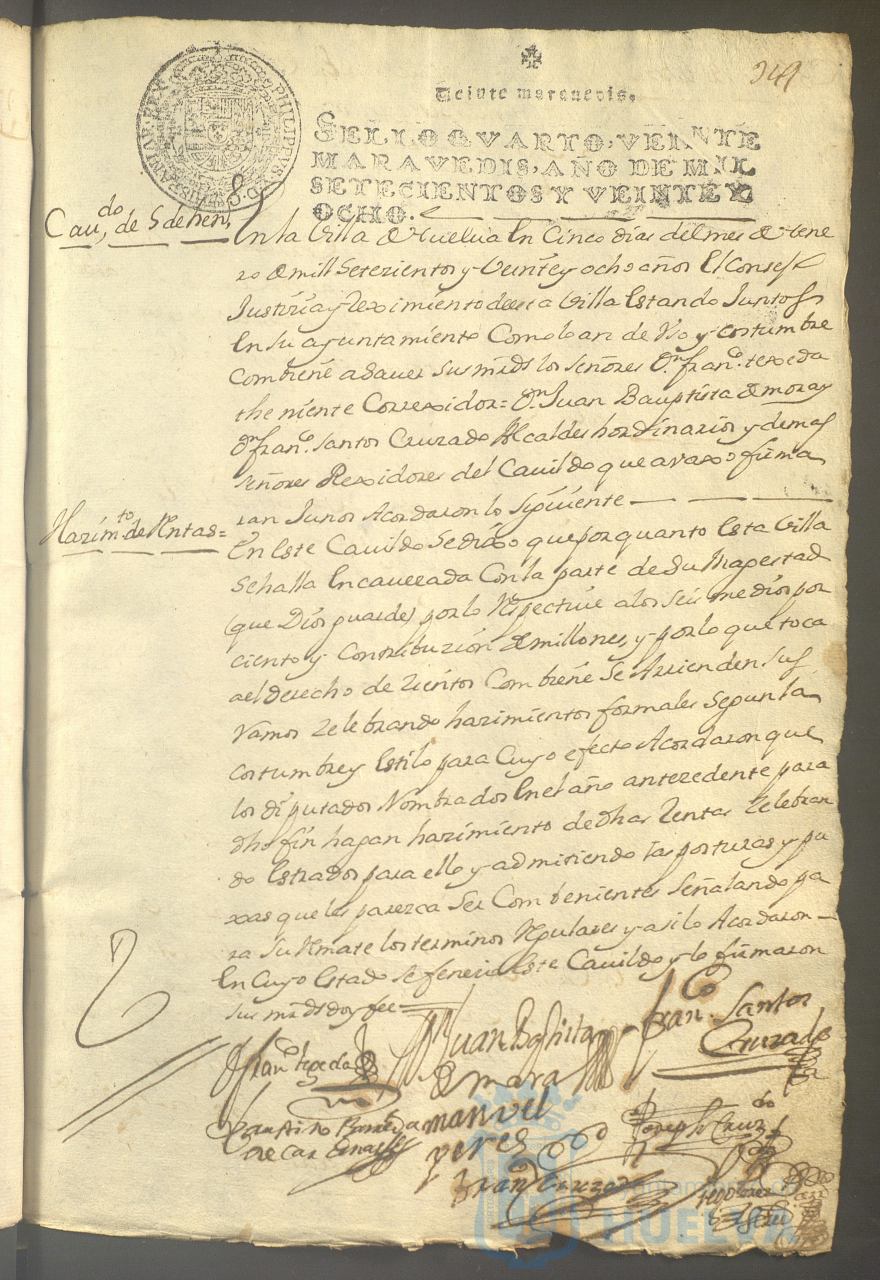 249
Veinte maravedis.
PHILIPPVS V D G HISPANIAR REX
SELLO QVARTO, VEINTE
MARAVEDIS, AÑO DE MIL
SETECIENTOS Y VEINTE Y
OCHO.
Cauᵈᵒ, de 5 de hen,
En la Villa de Huelua En Cinco dias del mes de hene
ro de mill Setezientos y Veintey ocho años El Consejº
Justizia y Reximiento de esta Villa Estando Juntos
En su ayuntamiento Como lo an de Vso y costumbre
Combiene asauer sus mrds los señores Dⁿ franᶜᵒ. texeda
theniente Correxidor= Dⁿ Juan Bauptista de mora y
Dⁿ franᶜᵒ. santos Cruzado Alcaldes hordinarios y demas
señores Rexidores del Cauildo que auaxo firma
ran Juntos Acordaron lo siguiente
Hazimᵗᵒ de Rentas=
En Este Cauildo Se dixo que por quanto Esta Villa
Se halla Encauezada Con la parte de Su Magestad
(que Dios guarde) por lo Respectiue a los seis medios por
ciento y Contribuzion de millones, y por lo que toca
a el derecho de zientos Combiene Se Arrienden sus
Ramos Zelebrando hazimientos formales segun la
costumbre y Estilo para Cuyo efecto Acordaron que
los diputados Nombrados En el año antezedente para
dho fin hagan hazimiento de dhas Rentas Zelebran
do Estrados para ello y admitiendo las posturas y pu
xas que les parezca Ser Combenientes Señalando pa
ra su Remate los terminos Regulares y asi lo Acordaron
En Cuyo Estado se fenecio Este Cauildo y lo firmaron
sus mrds doy fee
franᶜᵒ texeda
Juan Baptista
de mora
franᶜᵒ. Santos
Cruzado
de Cardenas
manuel
perez
Joseph Cruzᵈᵒ
Franᶜᵒ Cruzado
Ayuntamiento de
HUELVA